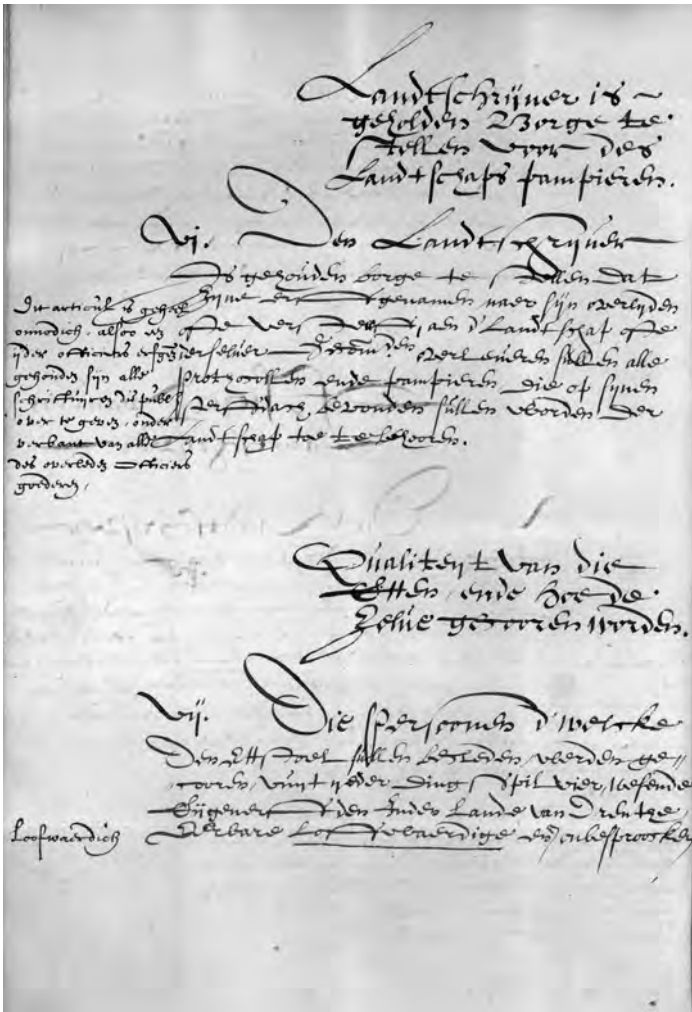 Landtschrijver is
geholden Borge te
stellen voor des
Landtschaps pampieren.
vi. Den Landtschrijver
Is gehouden borge te stellen dat
zijne erffgenamen naer sijn overlijden
ofte aen d'Landtschap ofte
overleveren sullen alle
Prothocollen ende pampieren die op synen
sterffdach bevonden sullen worden der
Landtschap toe te behooren.
Dit articul is geheel
onnodich, alsoo
ijder officiers
gehouden sijn alle
over te geven, onder
verbant van alle
des overleden officiers
goederen.
Qualiteyt van die
Etten, ende hoe de
zelve gecooren worden.
vij. Die Persoonen d'welcke
Den Ettstoel sullen becleden, werden ge-
cooren, wuyt yeder dingspil vier, wesende
Eijgenerffden Inden Lande van Drenthe
Eerbare Loffwaerdige ende onbesproocken
Loofwaerdich